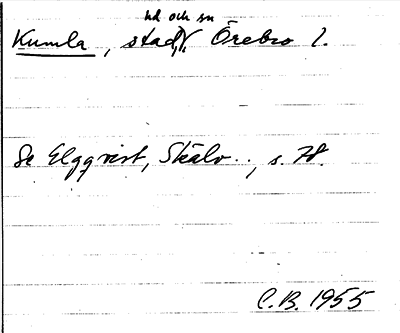 hd och sn
Kumla, stad, Örebro l.
Se Elgqvist, Skälv.., s. 78.
C.B. 1955